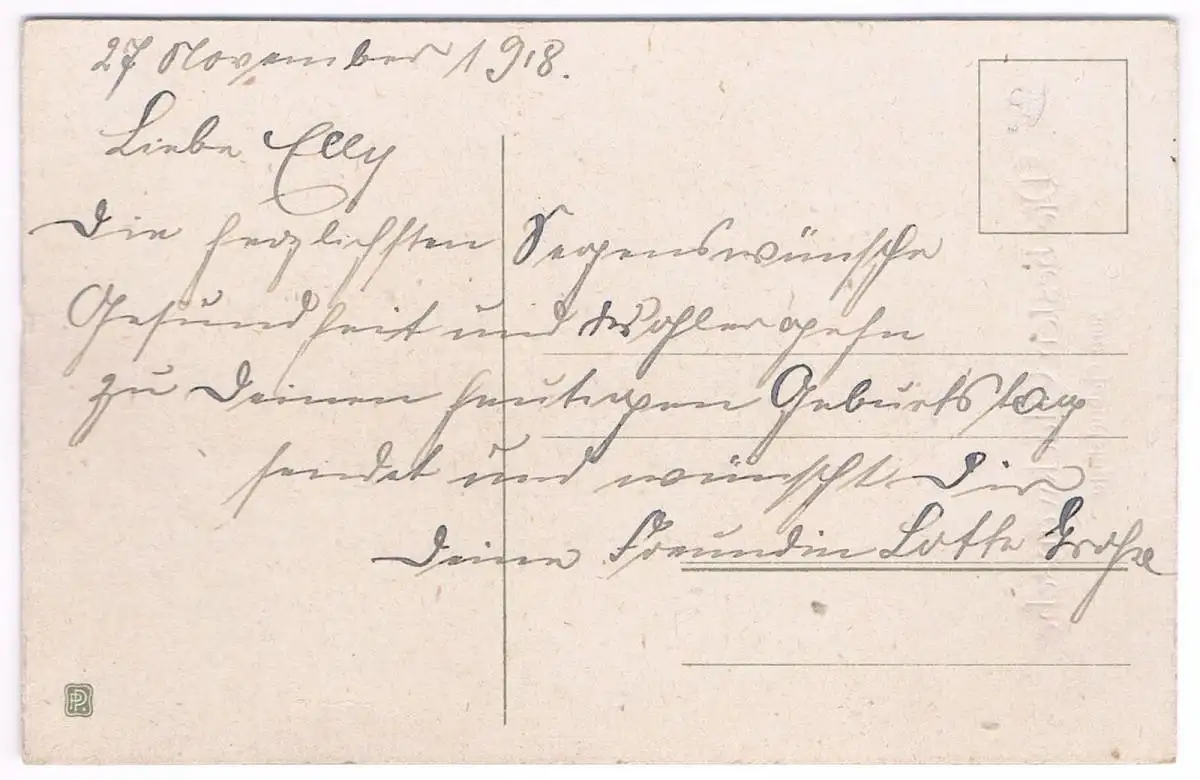 27 November 1918.
Liebe Elly
Die herzlichsten Segenswünsche
Gesundheit und Wohlergehn
zu Deinen heutigen Geburtstag
sendet und wünscht Dir
Deine Freundin Lotte
PP.